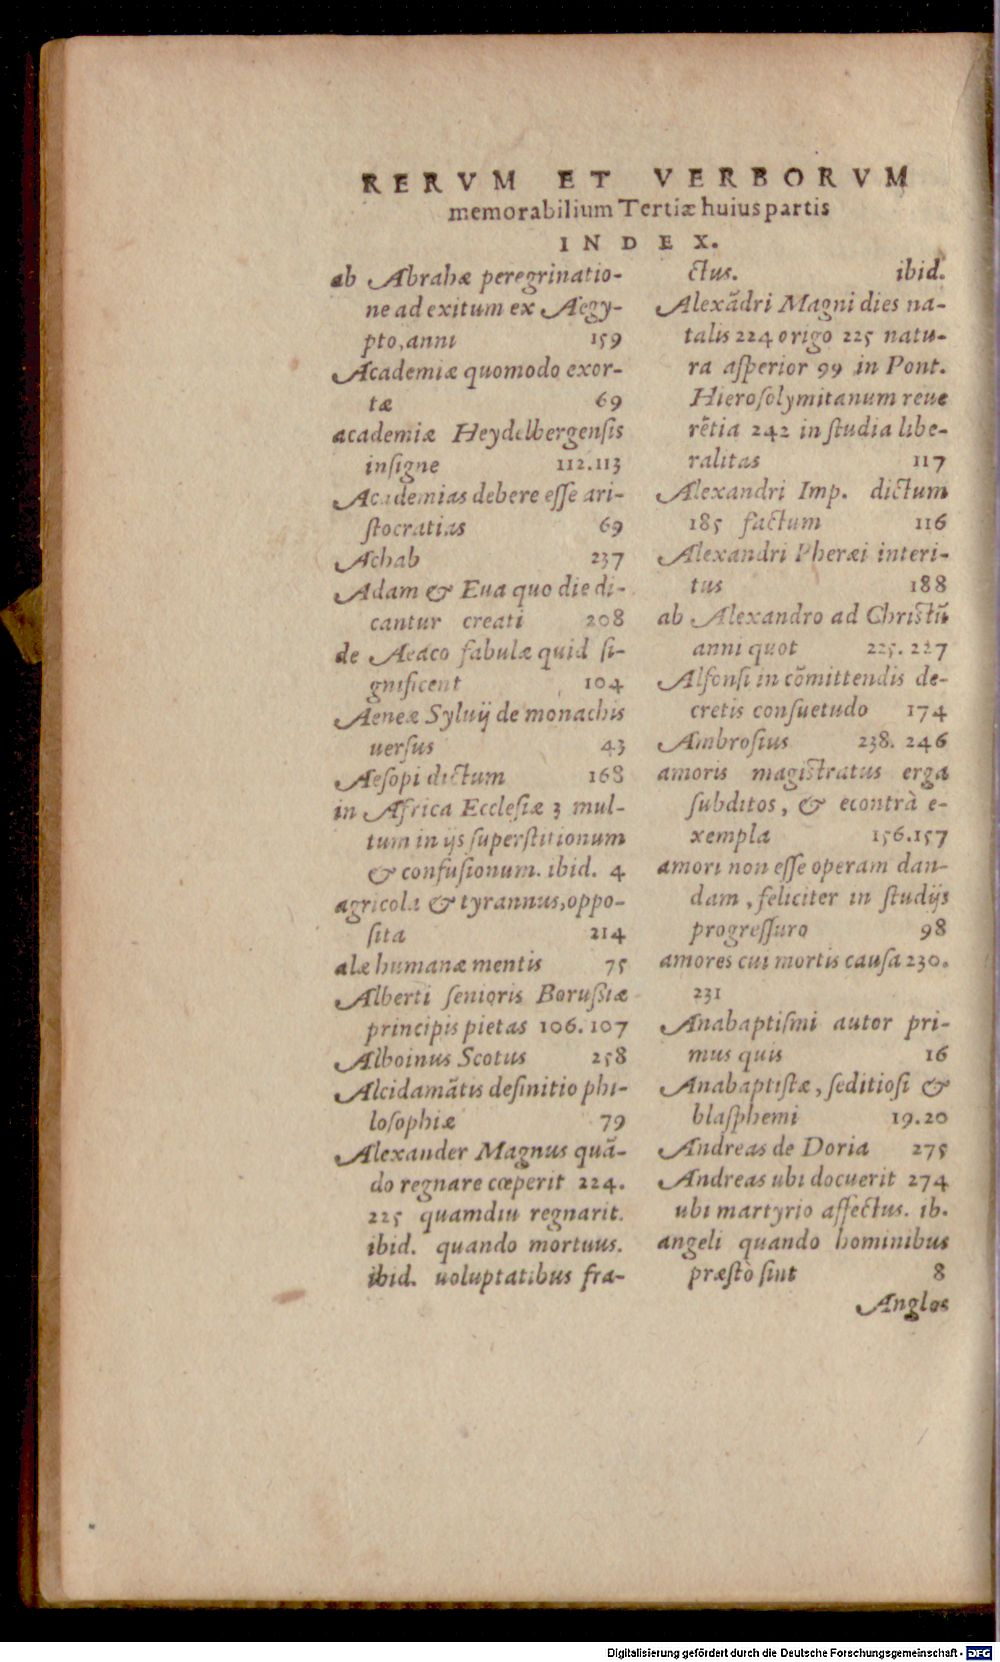 RERVM ET VERBORVM
memorabilium Tertiæ huius partis
INDEX.
ab Abrahæ peregrinatio-
ne ad exitum ex Aegy-
pto, anni 159
Academiæ quomodo exor-
tæ 69
academiæ Heydelbergensis
insigne 112.113
Academias debere esse ari-
stocratias 69
Achab 237
Adam & Eua quo die di-
cantur creati 208
de Aeaco fabulæ quid si-
gnificent 104
Aeneæ Syluij de monachis
uersus 43
Aesopi dictum 168
in Africa Ecclesiæ 3 mul-
tum in ijs superstitionum
& confusionum. ibid. 4
agricola & tyrannus, oppo-
sita 214
alæ humanæ mentis 75
Alberti senioris Borussiæ
principis pietas 106.107
Alboinus Scotus 258
Alcidamãtis definitio phi-
losophiæ 79
Alexander Magnus quã-
do regnare cœperit 224.
225 quamdiu regnarit.
ibid. quando mortuus.
ibid. uoluptatibus fra-
ctus. ibid.
Alexãdri Magni dies na-
talis 224 origo 225 natu-
ra asperior 99 in Pont.
Hierosolymitanum reue
rẽtia 242 in studia libe-
ralitas 117
Alexandri Imp. dictum
185 factum 116
Alexandri Pheræi interi-
tus 188
ab Alexandro ad Christũ
anni quot 225. 227
Alfonsi in cõmittendis de-
cretis consuetudo 174
Ambrosius 238. 246
amoris magistratus erga
subditos, & econtrà e-
xempla 156.157
amori non esse operam dan-
dam, feliciter in studijs
progressuro 98
amores cui mortis causa 230.
231
Anabaptismi autor pri-
mus quis 16
Anabaptistæ, seditiosi &
blasphemi 19.20
Andreas de Doria 275
Andreas ubi docuerit 274
ubi martyrio affectus. ib.
angeli quando hominibus
præstò sint 8
Anglos
Digitalisierung gefördert durch die Deutsche Forschungsgemeinschaft - DFG